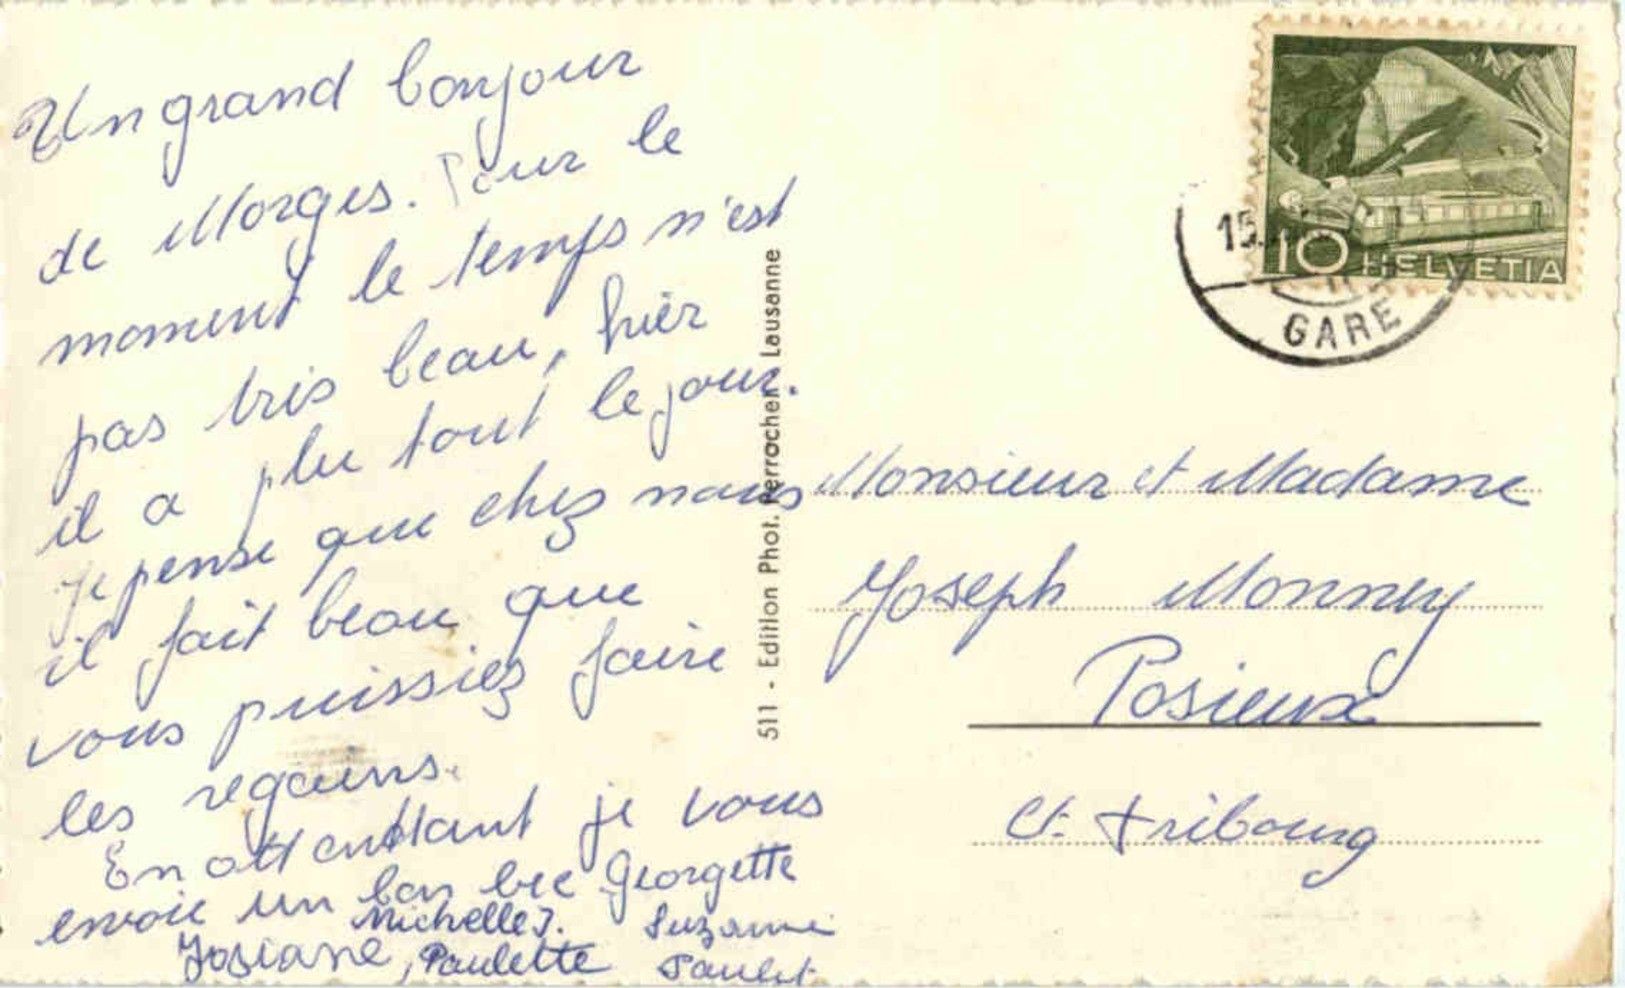 Un grand bonjour
de Morges. Pour le
moment le temps n'est
pas très beau, hier
il a plu tout le jour.
je pense que chez nous
il fait beau que
vous puissiez faire
les regains.
En attendant je vous
envoie un bon bec Georgette
Michelle J. Suzanne
Josiane, Paulette
511 - Edition Phot. Perrochet Lausanne
15.
10 HELVETIA
GARE
Monsieur et Madame
Joseph Monney
Posieux
Ct. Fribourg